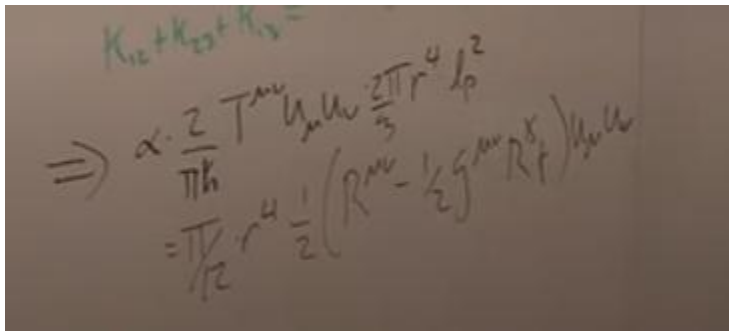 K₁₂+K₂₃+K₁₃=
⇒ α · 2/πħ T^μν u_μ u_ν · 2π/3 r⁴ lp²
= π/12 · r⁴ 1/2 (R^μν - 1/2 g^μν R^γ_γ) u_μ u_ν